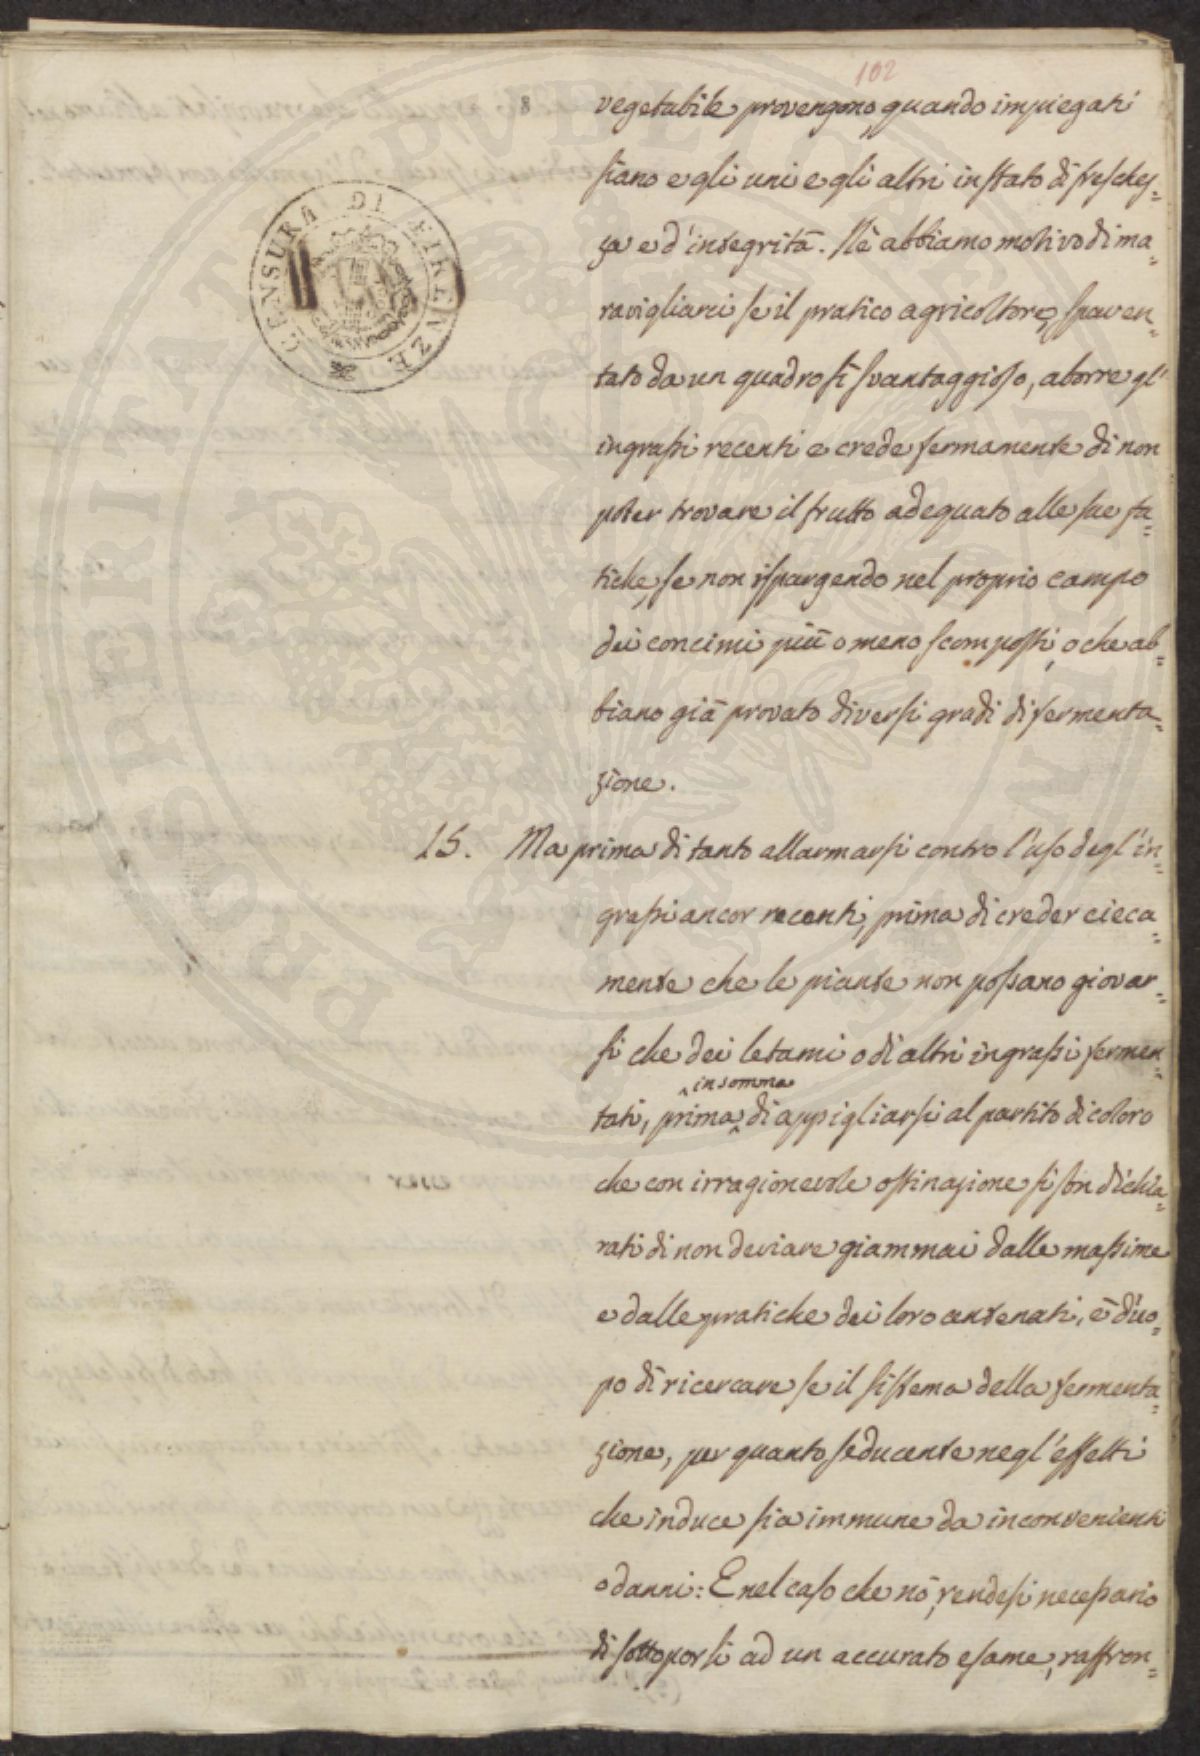 102
8
vegetabile provengono, quando impiegati
siano e gli uni e gli altri in stato di freschez=
za e d'integrità. Nè abbiamo motivo di ma=
ravigliarci se il pratico agricoltore, spaven=
tato da un quadro sì svantaggioso, aborre gl'
ingrassi recenti e crede fermamente di non
poter trovare il frutto adeguato alle sue fa=
tiche, se non ispargendo nel proprio campo
dei concimi più o meno scomposti, o che ab=
biano già provato diversi gradi di fermenta=
zione.
15. Ma prima di tanto allarmarsi contro l'uso degl'in=
grassi ancor recenti, prima di creder cieca=
mente che le piante non possano giovar=
si che dei letami o di altri ingrassi fermen=
insomma
tati, prima di appigliarsi al partito di coloro
che con irragionevole ostinazione si son dichia=
rati di non deviare giammai dalle massime
e dalle pratiche dei loro antenati, è d'uo=
po di ricercare se il sistema della fermenta=
zione, per quanto seducente negl'effetti
che induce sia immune da inconvenienti
o danni: E nel caso che nò, rendesi necessario
di sottoporsi ad un accurato esame, raffron=
CENSURA DI FIRENZE
PROSPERITATI PUBLICAE AUGENDAE